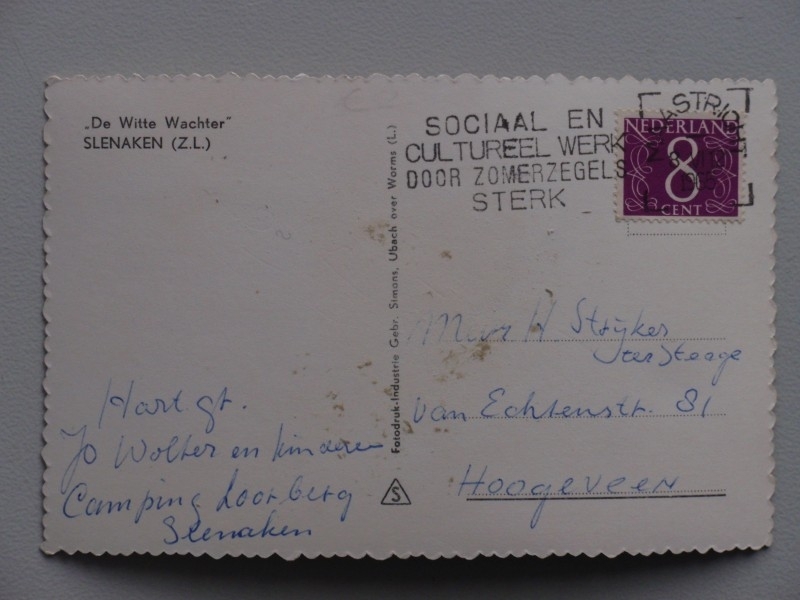 „De Witte Wachter"
SLENAKEN (Z.L.)
SOCIAAL EN
CULTUREEL WERK
DOOR ZOMERZEGELS
STERK
MAASTRICHT
NEDERLAND
8
CENT
Fotodruk-Industrie Gebr. Simons, Ubach over Worms (L.)
Hart. gt.
Jo Wolter en kinderen
Camping Loorberg
Slenaken
H Strijker
ter Steege
van Echtenstr. 81
Hoogeveen
S